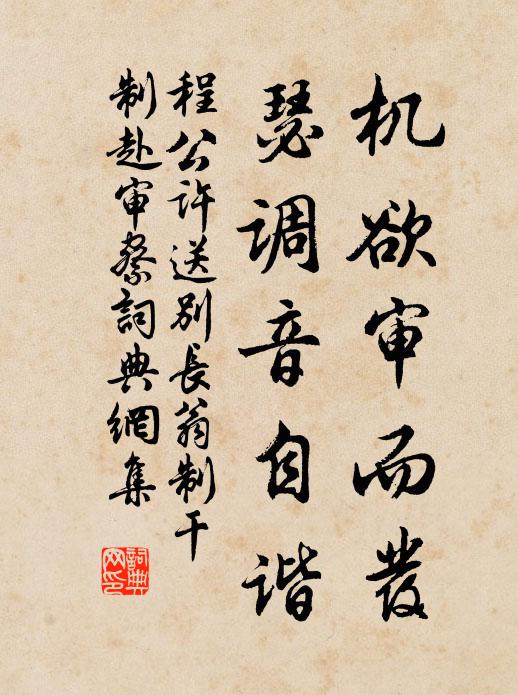 机欲审而發
瑟調音自谐
程公許送别長翁制干
制赴审察詞典網集
詞典
网印